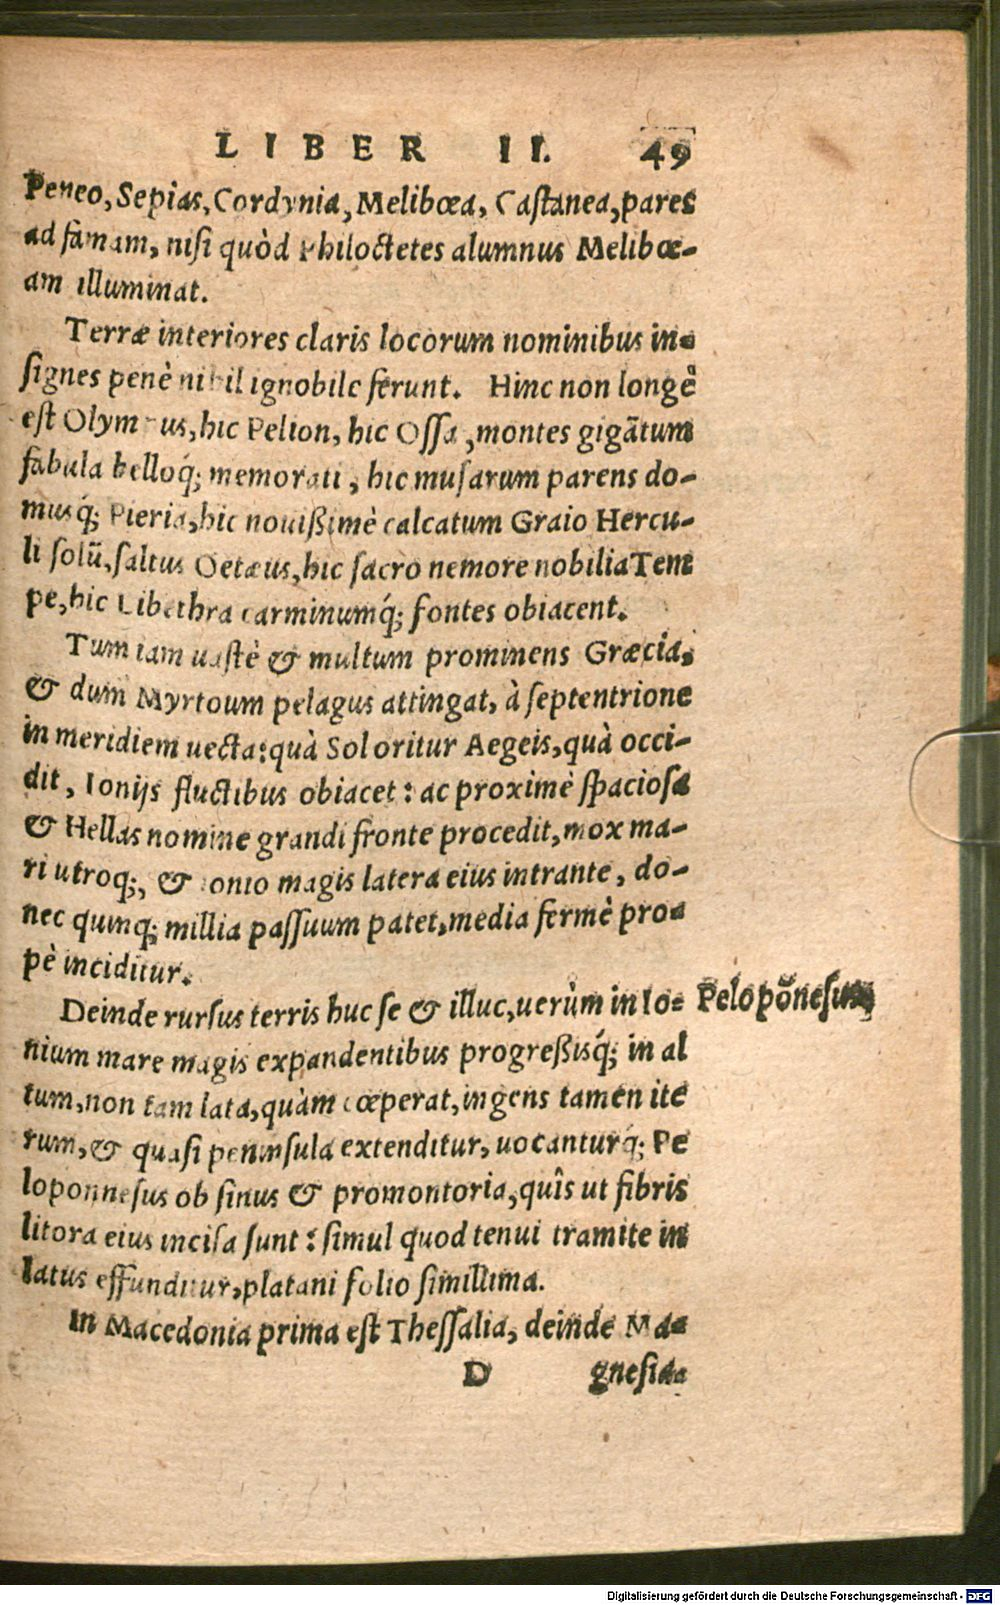 LIBER II. 49
Peneo, Sepias, Cordynia, Melibœa, Castanea, pares
ad famam, nisi quòd Philoctetes alumnus Melibœ-
am illuminat.
Terræ interiores claris locorum nominibus in-
signes penè nihil ignobile ferunt. Hinc non longè
est Olympus, hic Pelion, hic Ossa, montes gigãtum
fabula belloq́; memorati, hic musarum parens do-
musq́; Pieria, hic nouißimè calcatum Graio Hercu-
li solũ, saltus Oetæus, hic sacro nemore nobilia Tem
pe, hic Libethra carminumq́; fontes obiacent.
Tum iam uastè & multum prominens Græcia,
& dum Myrtoum pelagus attingat, à septentrione
in meridiem uecta: quà Sol oritur Aegeis, quà occi-
dit, Ionijs fluctibus obiacet: ac proximè spaciosa
& Hellas nomine grandi fronte procedit, mox ma-
ri utroq;, & Ionio magis latera eius intrante, do-
nec quinq; millia passuum patet, media fermè pro-
pè inciditur.
Deinde rursus terris huc se & illuc, uerùm in Io- Pelopõnesus
nium mare magis expandentibus progreßisq́; in al
tum, non tam lata, quàm cœperat, ingens tamen ite
rum, & quasi peninsula extenditur, uocanturq́; Pe
loponnesus ob sinus & promontoria, quîs ut fibris
litora eius incisa sunt: simul quod tenui tramite in
latus effunditur, platani folio simillima.
In Macedonia prima est Thessalia, deinde Ma-
D gnesia
Digitalisierung gefördert durch die Deutsche Forschungsgemeinschaft - DFG